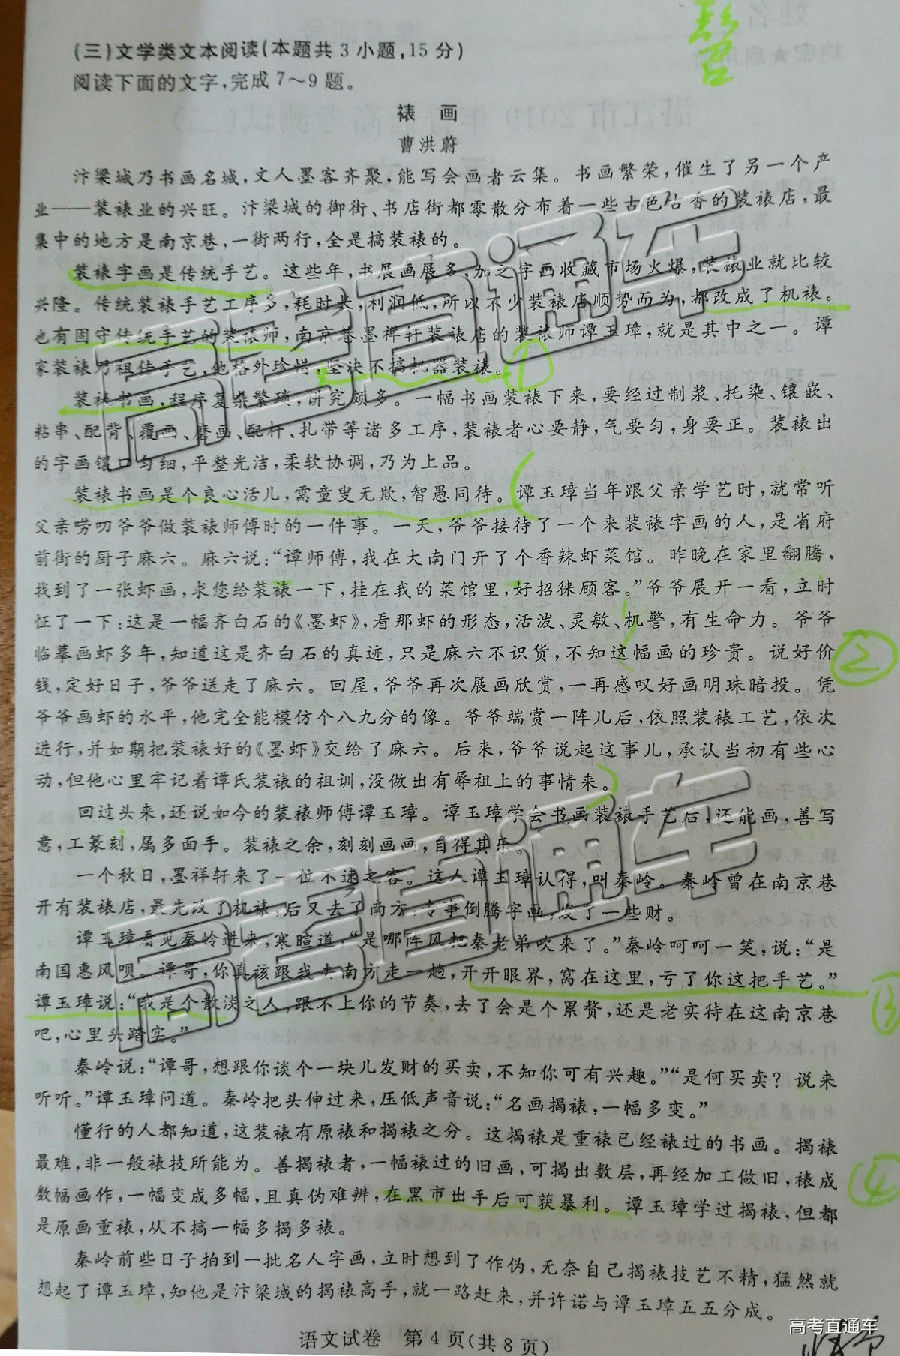 (三)文学类文本阅读(本题共3小题,15分)
阅读下面的文字,完成7～9题。
裱 画
曹洪蔚
汴梁城乃书画名城,文人墨客齐聚,能写会画者云集。书画繁荣,催生了另一个产
业——装裱业的兴旺。汴梁城的御街、书店街都零散分布着一些古色古香的装裱店,最
集中的地方是南京巷,一街两行,全是搞装裱的。
装裱字画是传统手艺。这些年,书展画展多,加之字画收藏市场火爆,装裱业就比较
兴隆。传统装裱手艺工序多,耗时长,利润低,所以不少装裱店顺势而为,都改成了机裱。
也有固守传统手艺的装裱师,南京巷墨祥轩装裱店的装裱师谭玉璋,就是其中之一。谭
家装裱乃祖传手艺,他格外珍惜,坚决不搞机器装裱。
装裱书画,程序复杂繁琐,讲究颇多。一幅书画装裱下来,要经过制浆、托染、镶嵌、
粘串、配背、覆画、磨画、配杆、扎带等诸多工序,装裱者心要静,气要匀,身要正。装裱出
的字画镶口匀细,平整光洁,柔软协调,乃为上品。
装裱书画是个良心活儿,需童叟无欺,智愚同待。谭玉璋当年跟父亲学艺时,就常听
父亲唠叨爷爷做装裱师傅时的一件事。一天,爷爷接待了一个来装裱字画的人,是省府
前街的厨子麻六。麻六说:“谭师傅,我在大南门开了个香辣虾菜馆。昨晚在家里翻腾,
找到了一张虾画,求您给装裱一下,挂在我的菜馆里,好招徕顾客。”爷爷展开一看,立时
怔了一下:这是一幅齐白石的《墨虾》,看那虾的形态,活泼、灵敏、机警,有生命力。爷爷
临摹画虾多年,知道这是齐白石的真迹,只是麻六不识货,不知这幅画的珍贵。说好价
钱,定好日子,爷爷送走了麻六。回屋,爷爷再次展画欣赏,一再感叹好画明珠暗投。凭
爷爷画虾的水平,他完全能模仿个八九分的像。爷爷端赏一阵儿后,依照装裱工艺,依次
进行,并如期把装裱好的《墨虾》交给了麻六。后来,爷爷说起这事儿,承认当初有些心
动,但他心里牢记着谭氏装裱的祖训,没做出有辱祖上的事情来。
回过头来,还说如今的装裱师傅谭玉璋。谭玉璋学会书画装裱手艺后,还能画,善写
意,工篆刻,属多面手。装裱之余,刻刻画画,自得其乐。
一个秋日,墨祥轩来了一位不速之客。这人谭玉璋认得,叫秦岭。秦岭曾在南京巷
开有装裱店,最先改了机裱,后又去了南方,专事倒腾字画,发了一些财。
谭玉璋看见秦岭进来,寒暄道:“是哪阵风把秦老弟吹来了。”秦岭呵呵一笑,说:“是
南国惠风呗。谭哥,你真该跟我去南方走一趟,开开眼界,窝在这里,亏了你这把手艺。”
谭玉璋说:“我是个散淡之人,跟不上你的节奏,去了会是个累赘,还是老实待在这南京巷
吧,心里头踏实。”
秦岭说:“谭哥,想跟你谈个一块儿发财的买卖,不知你可有兴趣。”“是何买卖？说来
听听。”谭玉璋问道。秦岭把头伸过来,压低声音说:“名画揭裱,一幅多变。”
懂行的人都知道,这装裱有原裱和揭裱之分。这揭裱是重裱已经裱过的书画。揭裱
最难,非一般裱技所能为。善揭裱者,一幅裱过的旧画,可揭出数层,再经加工做旧,裱成
数幅画作,一幅变成多幅,且真伪难辨,在黑市出手后可获暴利。谭玉璋学过揭裱,但都
是原画重裱,从不搞一幅多揭多裱。
秦岭前些日子拍到一批名人字画,立时想到了作伪,无奈自己揭裱技艺不精,猛然就
想起了谭玉璋,知他是汴梁城的揭裱高手,就一路赶来,并许诺与谭玉璋五五分成。
语文试卷 第4页(共8页)
高考直通车
高考直通车
高考直通车
①
②
③
④